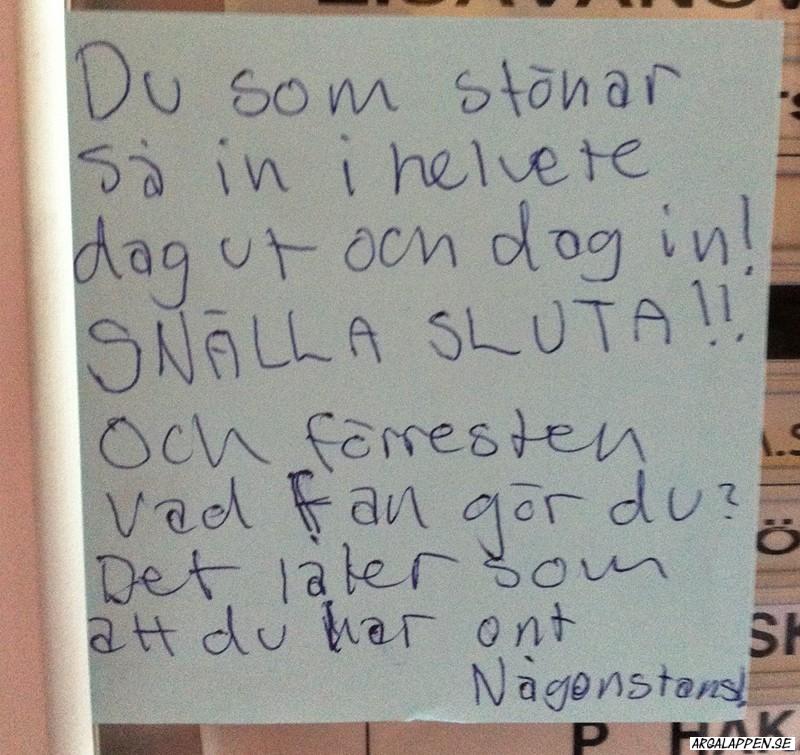 Du som stönar
så in i helvete
dag ut och dag in!
SNÄLLA SLUTA!!
Och förresten
vad fan gör du?
Det låter som
att du har ont
Någonstans!
P HÅK
ARGALAPPEN.SE